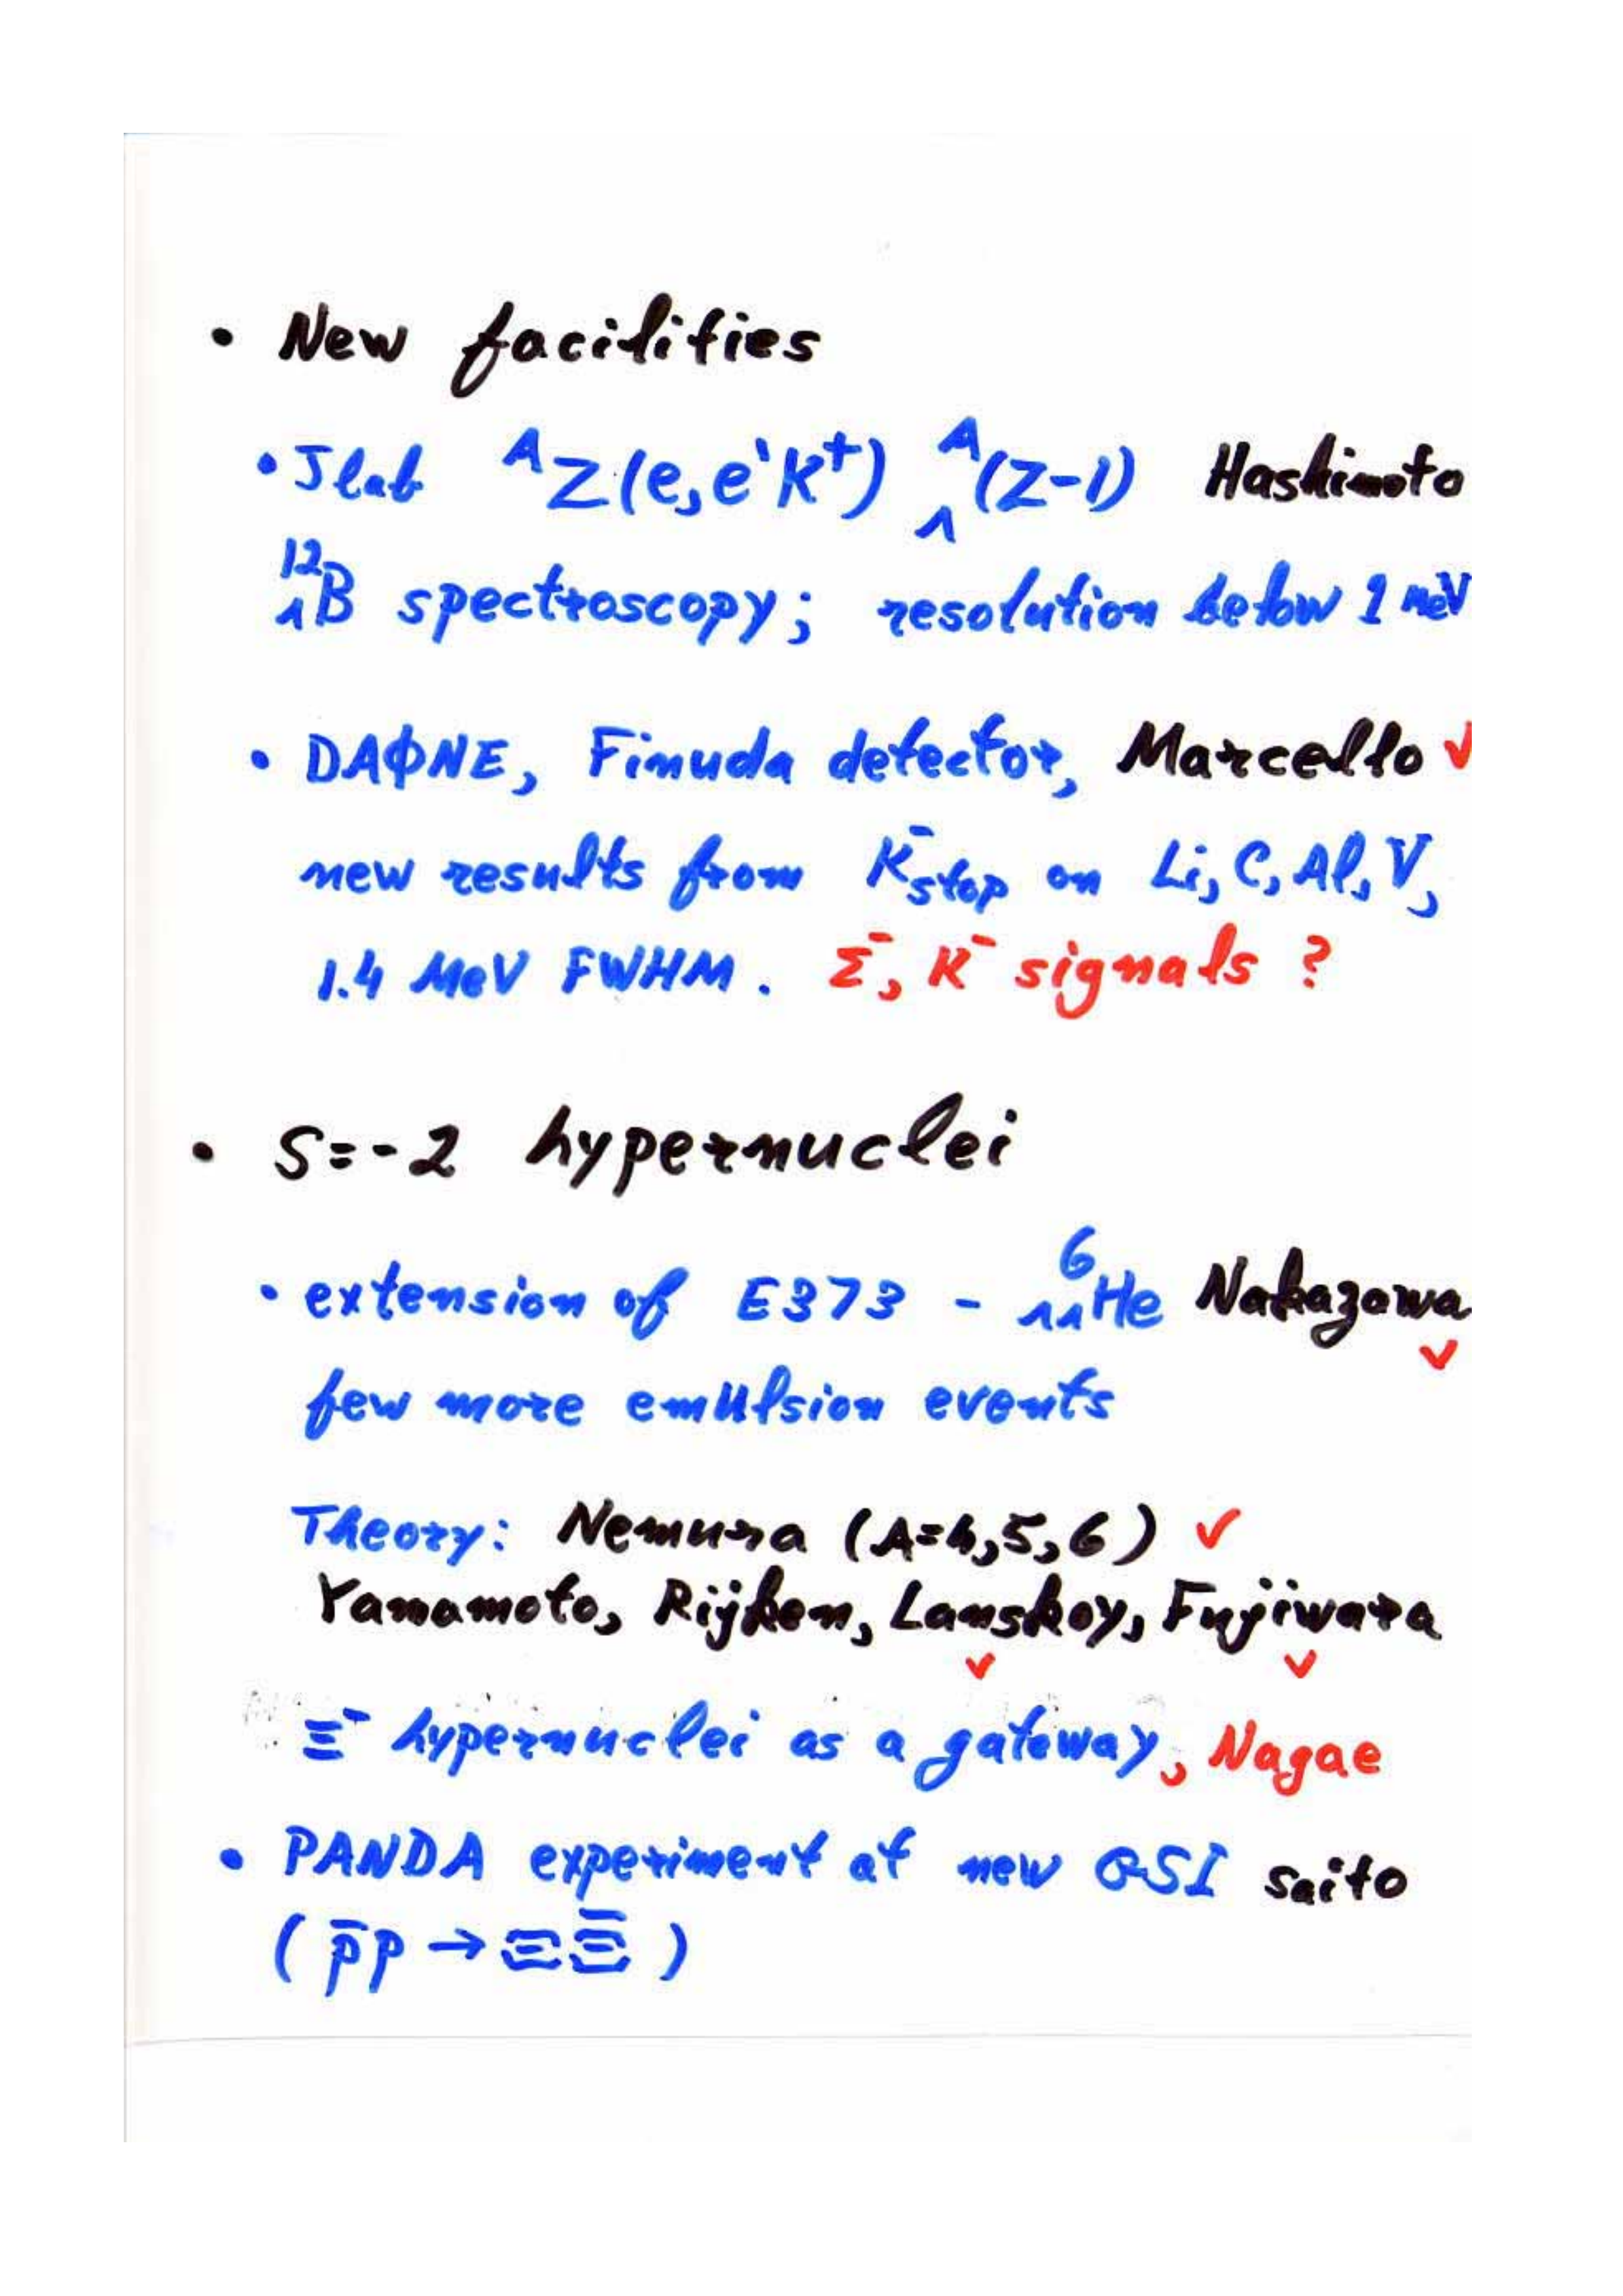 • New facilities
• Jlab ᴬZ(e,e'K⁺) ᴬ_Λ(Z-1) Hashimoto
¹²_ΛB spectroscopy; resolution below 1 MeV
• DAΦNE, Finuda detector, Marcello ✓
new results from K⁻stop on Li, C, Al, V,
1.4 MeV FWHM. Σ⁻, K⁻ signals ?
• S=-2 hypernuclei
• extension of E373 - ⁶_ΛΛHe Nakazawa ✓
few more emulsion events
Theory: Nemura (A=4,5,6) ✓
Yamamoto, Rijken, Lanskoy, Fujiwara
✓ ✓
Ξ⁻ hypernuclei as a gateway, Nagae
• PANDA experiment at new GSI Saito
(p̄p → ΞΞ̄)